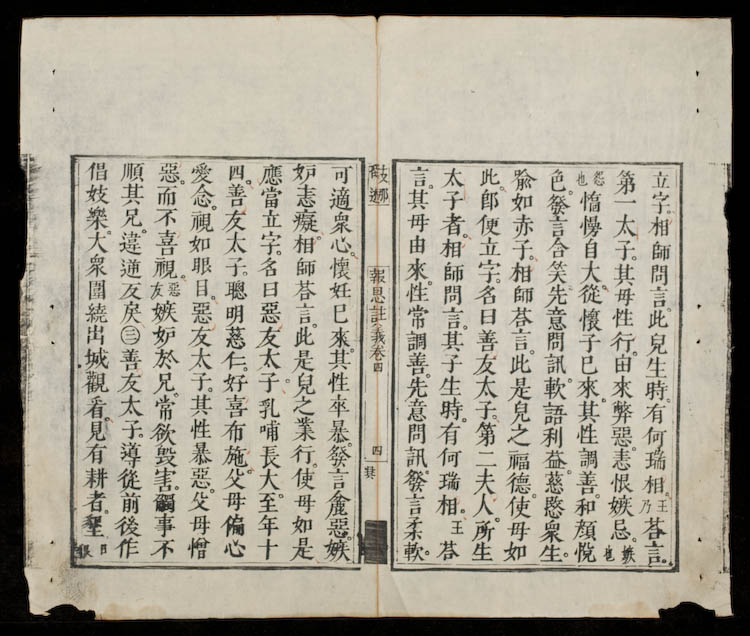 立字。相師問言。此兒生時。有何瑞相。王乃荅言。
第一太子。其母性行。由來弊惡。恚恨嫉忌。嫉也
怨也憍慢自大。從懷子已來。其性調善。和顏悅
色。發言含笑。先意問訊。軟語利益。慈愍衆生。
喻如赤子。相師荅言。此是兒之福德。使母如
此。卽便立字。名曰善友太子。第二夫人。所生
太子者。相師問言。其子生時。有何瑞相。王荅
言。其母由來性常調善。先意問訊。發言柔軟。
報恩註義卷四
四
可適衆心。懷妊已來。其性卒暴。發言麁惡。嫉
妒恚癡。相師荅言。此是兒之業行。使母如是。
應當立字。名曰惡友太子。乳哺長大。至年十
四。善友太子。聰明慈仁。好喜布施。父母偏心
愛念。視如眼目。惡友太子。其性暴惡。父母憎
惡。而不喜視。惡友嫉妒於兄。常欲毀害。觸事不
順其兄。違逆反戾㊂善友太子。導從前後。作
倡妓樂。大衆圍繞。出城觀看。見有耕者。墾